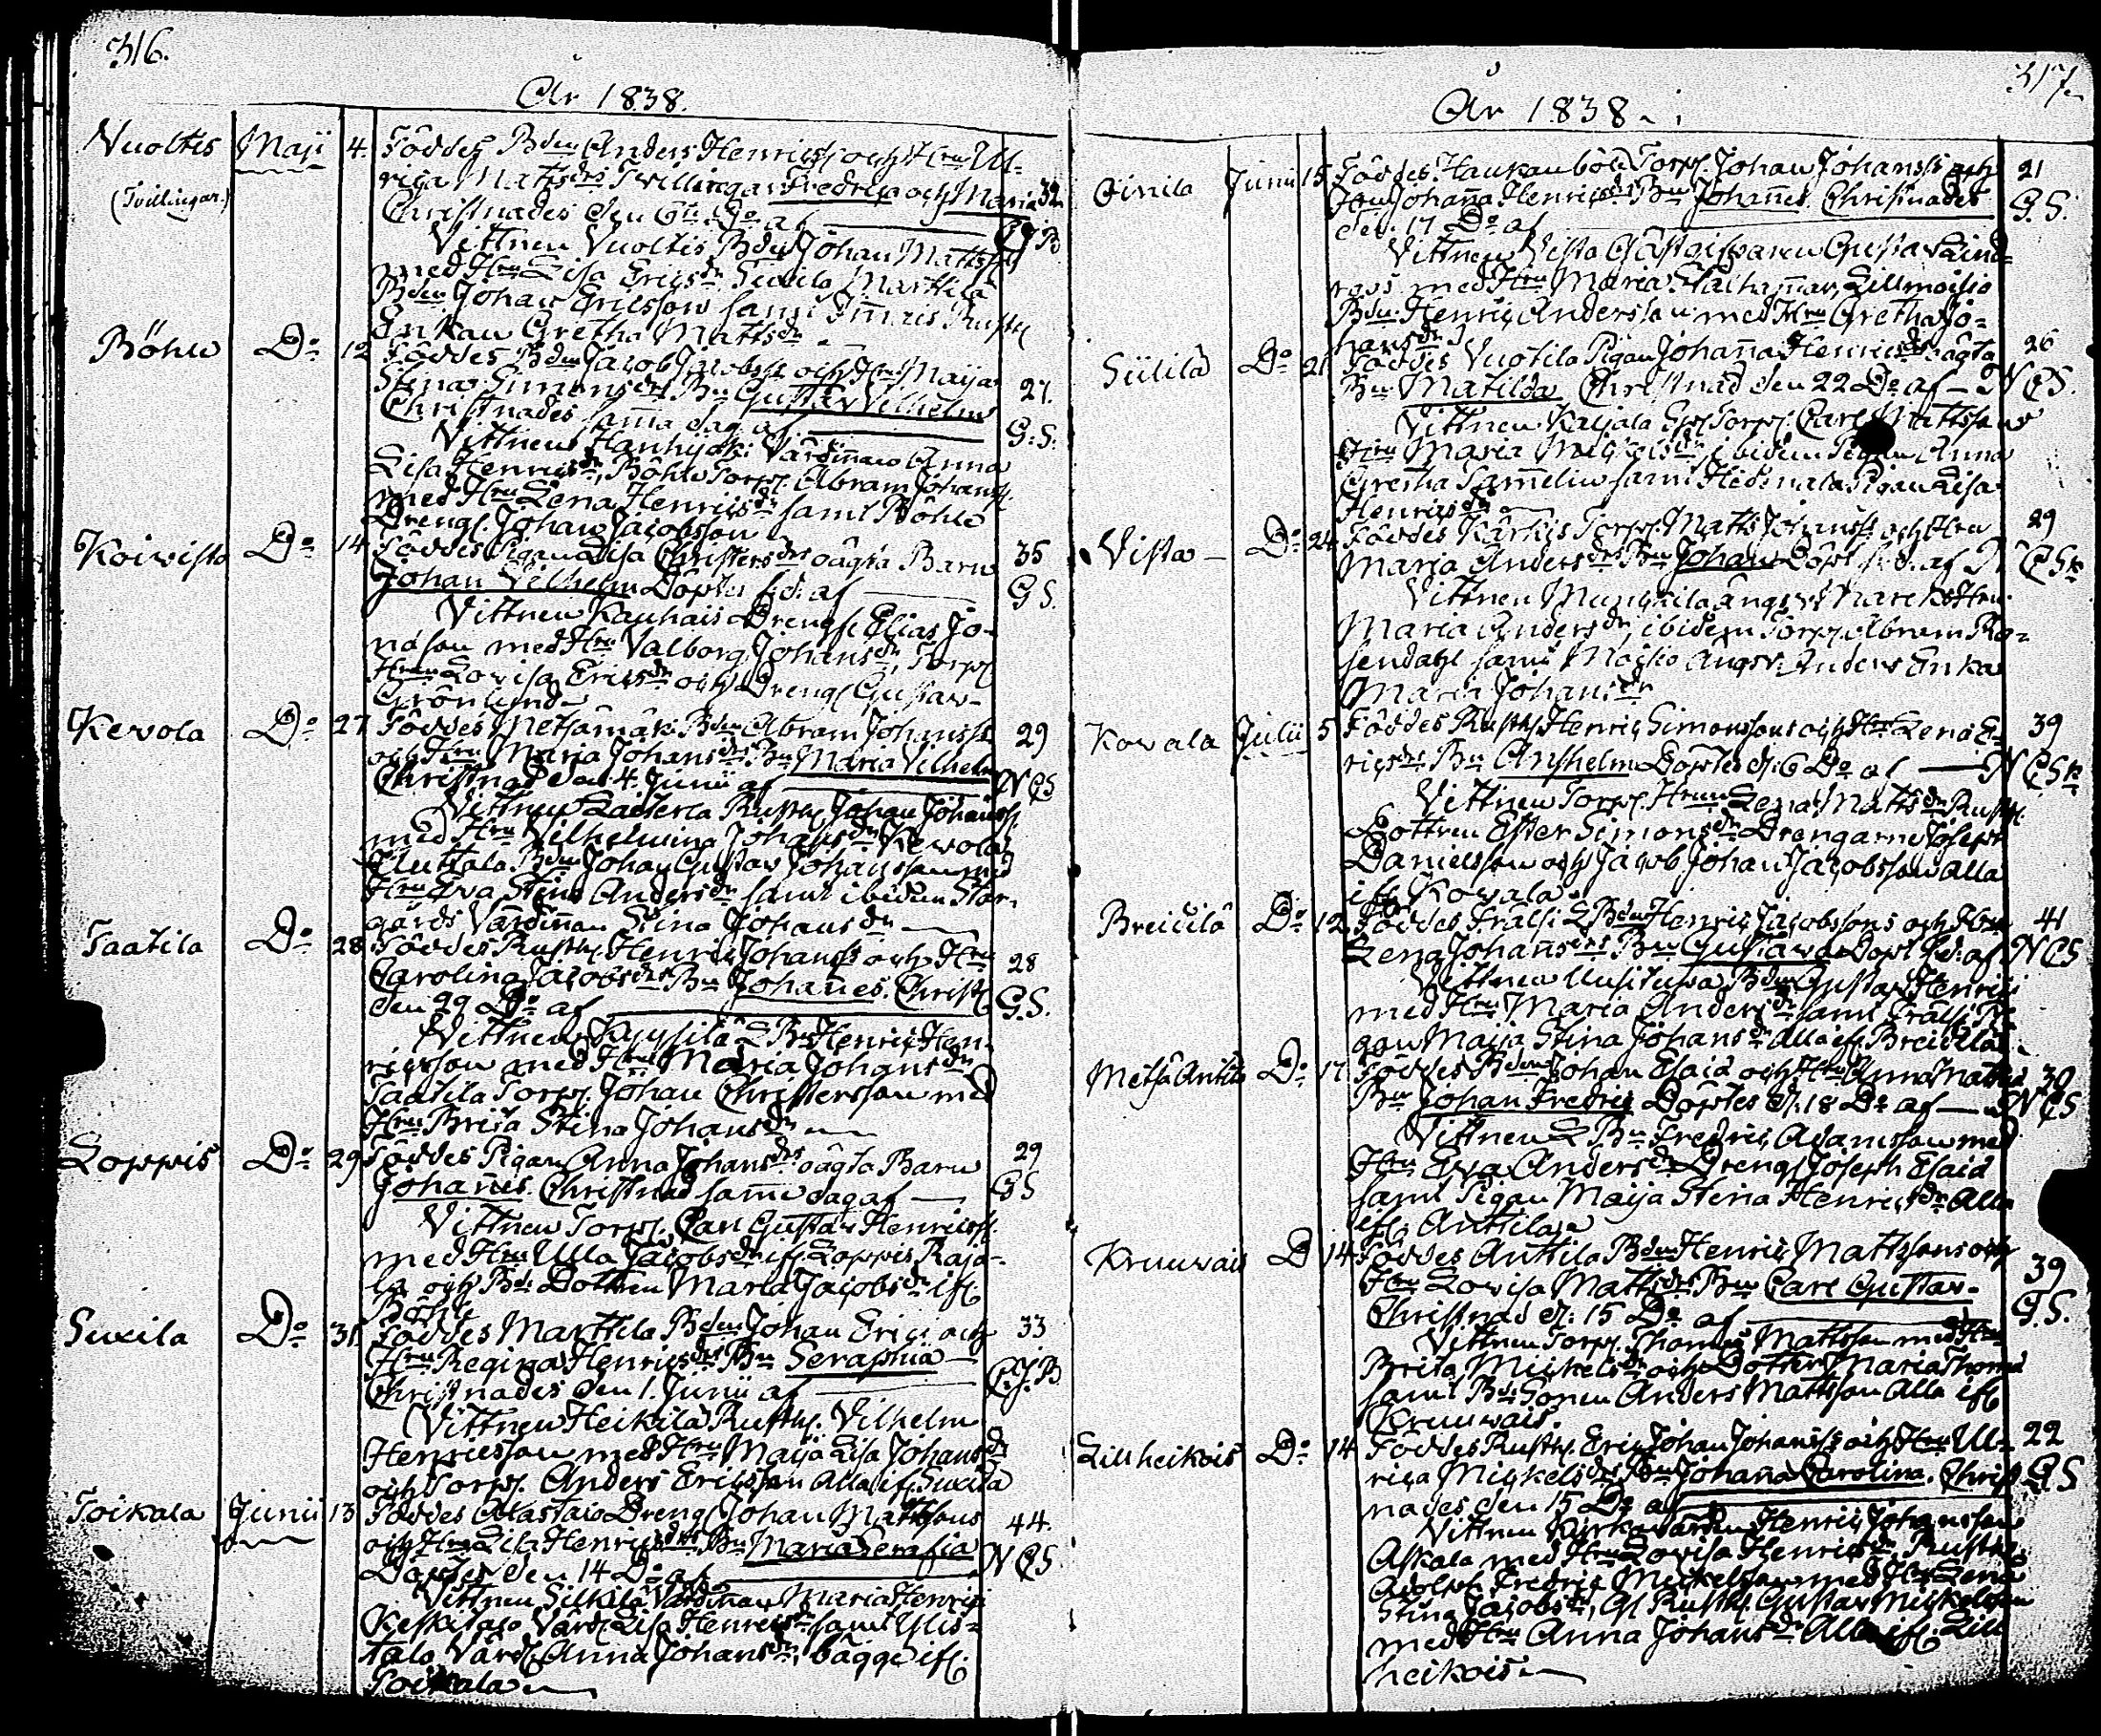 316.
År 1838.
Nuoltis Maji 4. Föddes Bden Anders Henricss och Hru Ul-
(Tvillingar.) rica Mattsdrs Tvillingar Fredrica och Maria 32
Christnades den 6te Do af CJB
Vittnen Vuoltis Bden Johan Mattss
med Hru Lisa Ericsdr, Suxila Marttila
Bden Johan Ericsson samt Rusth
Enkan Gretha Mattsdr
Böhle Do 12 Föddes Bden Jacob Jacobss och Hru Maija
Stina Simonsdrs Bn Gustav Vilhelm 27.
Christnades samma dag af G.S.
Vittnen Hanhijoki Värdinnan Anna
Lisa Henricsdr, Böhle Torp. Abram Johanss.
med Hru Lena Henricsdr samt Böhle
Dreng. Johan Jacobsson
Koivisto Do 14 Föddes Pigan Lisa Christersdrs oägta Barn 35
Johan Vilhelm Döptes s.d. af G.S.
Vittnen Kauhais Dreng Elias Jo-
nasson med Hru Valborg Johansdr, Torp.
Hrun Lovisa Ericsdr och Dreng Gustav
Grönlund
Kevola Do 27 Föddes Metsämäki Bden Abram Johanss
och Hru Maria Johansdrs Bn Maria Vilhelm 29
Christnad den 4. Junii af NCS
Vittnen Rusth. Johan Johanss.
med Hru Vilhelmina Johansdr, Kevola
Huttala Bden Johan Gustav Johansson med
Hru Eva Stina Andersdr samt ibidem Stor-
gårds Värdinnan Stina Johansdr
Taatila Do 28 Föddes Rusth. Henric Johanss och Hru
Carolina Jacobsdrs Bn Johannes. Christ. 28
den 29 Do af G.S.
Vittnen Kyysilä L Bn Henric Hen-
ricsson med Hru Maria Johansdr
Taatila Torp. Johan Christersson med
Hru Brita Stina Johansdr
Loppis Do 29 Föddes Pigan Anna Johansdrs oägta Barn 29
Johannes. Christnad samma dag af GS
Vittnen Torp. Carl Gustav Henricss.
med Hru Ulla Jacobsdr ifr. Loppis Rajo-
la och Bds Dottren Maria Jacobsdr ifr.
Böhle
Suxila Do 31 Föddes Marttila Bden Johan Erics. och 33
Hru Regina Henricsdrs Bn Seraphia
Christnades den 1. Junii af C.J.B
Vittnen Heikilä Rusth. Vilhelm
Henricsson med Hru Maija Lisa Johansdr
och Torp. Anders Ericsson Alla ifr. Suxila
Toikala Junii 13 Föddes Alastalo Dreng Johan Mattssons
och Hru Lisa Henricsdrs Bn Maria Serafia 44.
Döptes den 14 Do af NCS
Vittnen Silkilä Värdinnan Maria Henrics
Keskitalo Värd. Lisa Henricsdr samt Ylis-
talo Värd. Anna Johansdr, bägge ifr.
Toikala
317.
År 1838.
Oinila Junii 15 Föddes Haukanböle Torp. Johan Johanss och 21
Hru Johanna Henricsdrs Bn Johannes. Christnades G.S.
den 17 Do af
Vittnen Vista Gästgifvaren Gustav Lind-
roos med Hru Maria Lillmoisio
Bden Henric Andersson med Hru Gretha Jo-
hansdr
Siitilä Do 21 Föddes Vuotila Pigan Johanna Henricsdrs oägta 26
Bn Matilda Christnad den 22 Do af NCS.
Vittnen Kaljala Torp. Carl Mattsson
Hru Maria Michelsdr, ibidem Pigan Anna
Gretha Samelin samt Pigan Lisa
Henricsdr
Vista Do 24 Föddes Kärkis Torp. Matts Johanss och Hru 29
Maria Andersdrs Bn Johan Döpt s.d. af CSk
Vittnen Munckila Hru
Maria Andersdr, ibidem Torp. Abram Ro-
sendahl samt Moisio Anders Enka
Maria Johansdr
Kovala Julii 5 Föddes Rusth. Henric Simonssons och Hru Lena E- 39
ricsdrs Bn Anshelm Döptes d. 6 Do af NCSk
Vittnen Torp. Hrun Lena Mattsdr Rusth.
Dottren Ester Simonsdr Drengarne Joseph
Danielsson och Jacob Johan Jacobsson Alla
ifr. Kovala
Breidilä Do 12 Föddes Frälse L Bden Henric Jacobssons och Hru 41
Lena Johansdrs Bn Gustava Döpt s.d. af NCS
Vittnen Uusitupa Bden Gustav Henrics
med Hru Maria Andersdr samt Frälse Pi-
gan Maija Stina Johansdr Alla ifr. Breidilä
Metsä Anttila Do 17 Föddes Bden Johan Esaiæ och Hru Anna Matts 30
Bn Johan Fredric Döptes d. 18 Do af NCS
Vittnen L Bn Fredric Adamsson med
Hru Eva Andersdr Dreng Joseph Esaiæ
samt Pigan Maija Stina Henricsdr Alla
ifr. Anttila
Kruuvais D 14 Föddes Anttila Bden Henric Mattssons och
Hru Lovisa Mattsdrs Bn Carl Gustav 39
Christnad d. 15 Do af G.S.
Vittnen Torp. Thomas Mattsson med Hru
Brita Mickelsdr och Dotter Maria Thomæ
samt Bds Sonen Anders Mattsson Alla ifr.
Kruuvais.
Lillheikois Do 14 Föddes Rusth. Eric Johan Johanss och Hru Ul- 22
rica Mickelsdrs Bn Johanna Carolina. Christ- G.S
nades den 15 Do af
Vittnen Kyrkovärden Henric Johansson
Askala med Hru Lovisa Henricsdr, Rusth.
Adolph Fredric Mickelsson med Hru Lena
Stina Jacobsdr, Gl Rusth. Gustav Mickelsson
med Hru Anna Johansdr Alla ifr. Lill
heikois